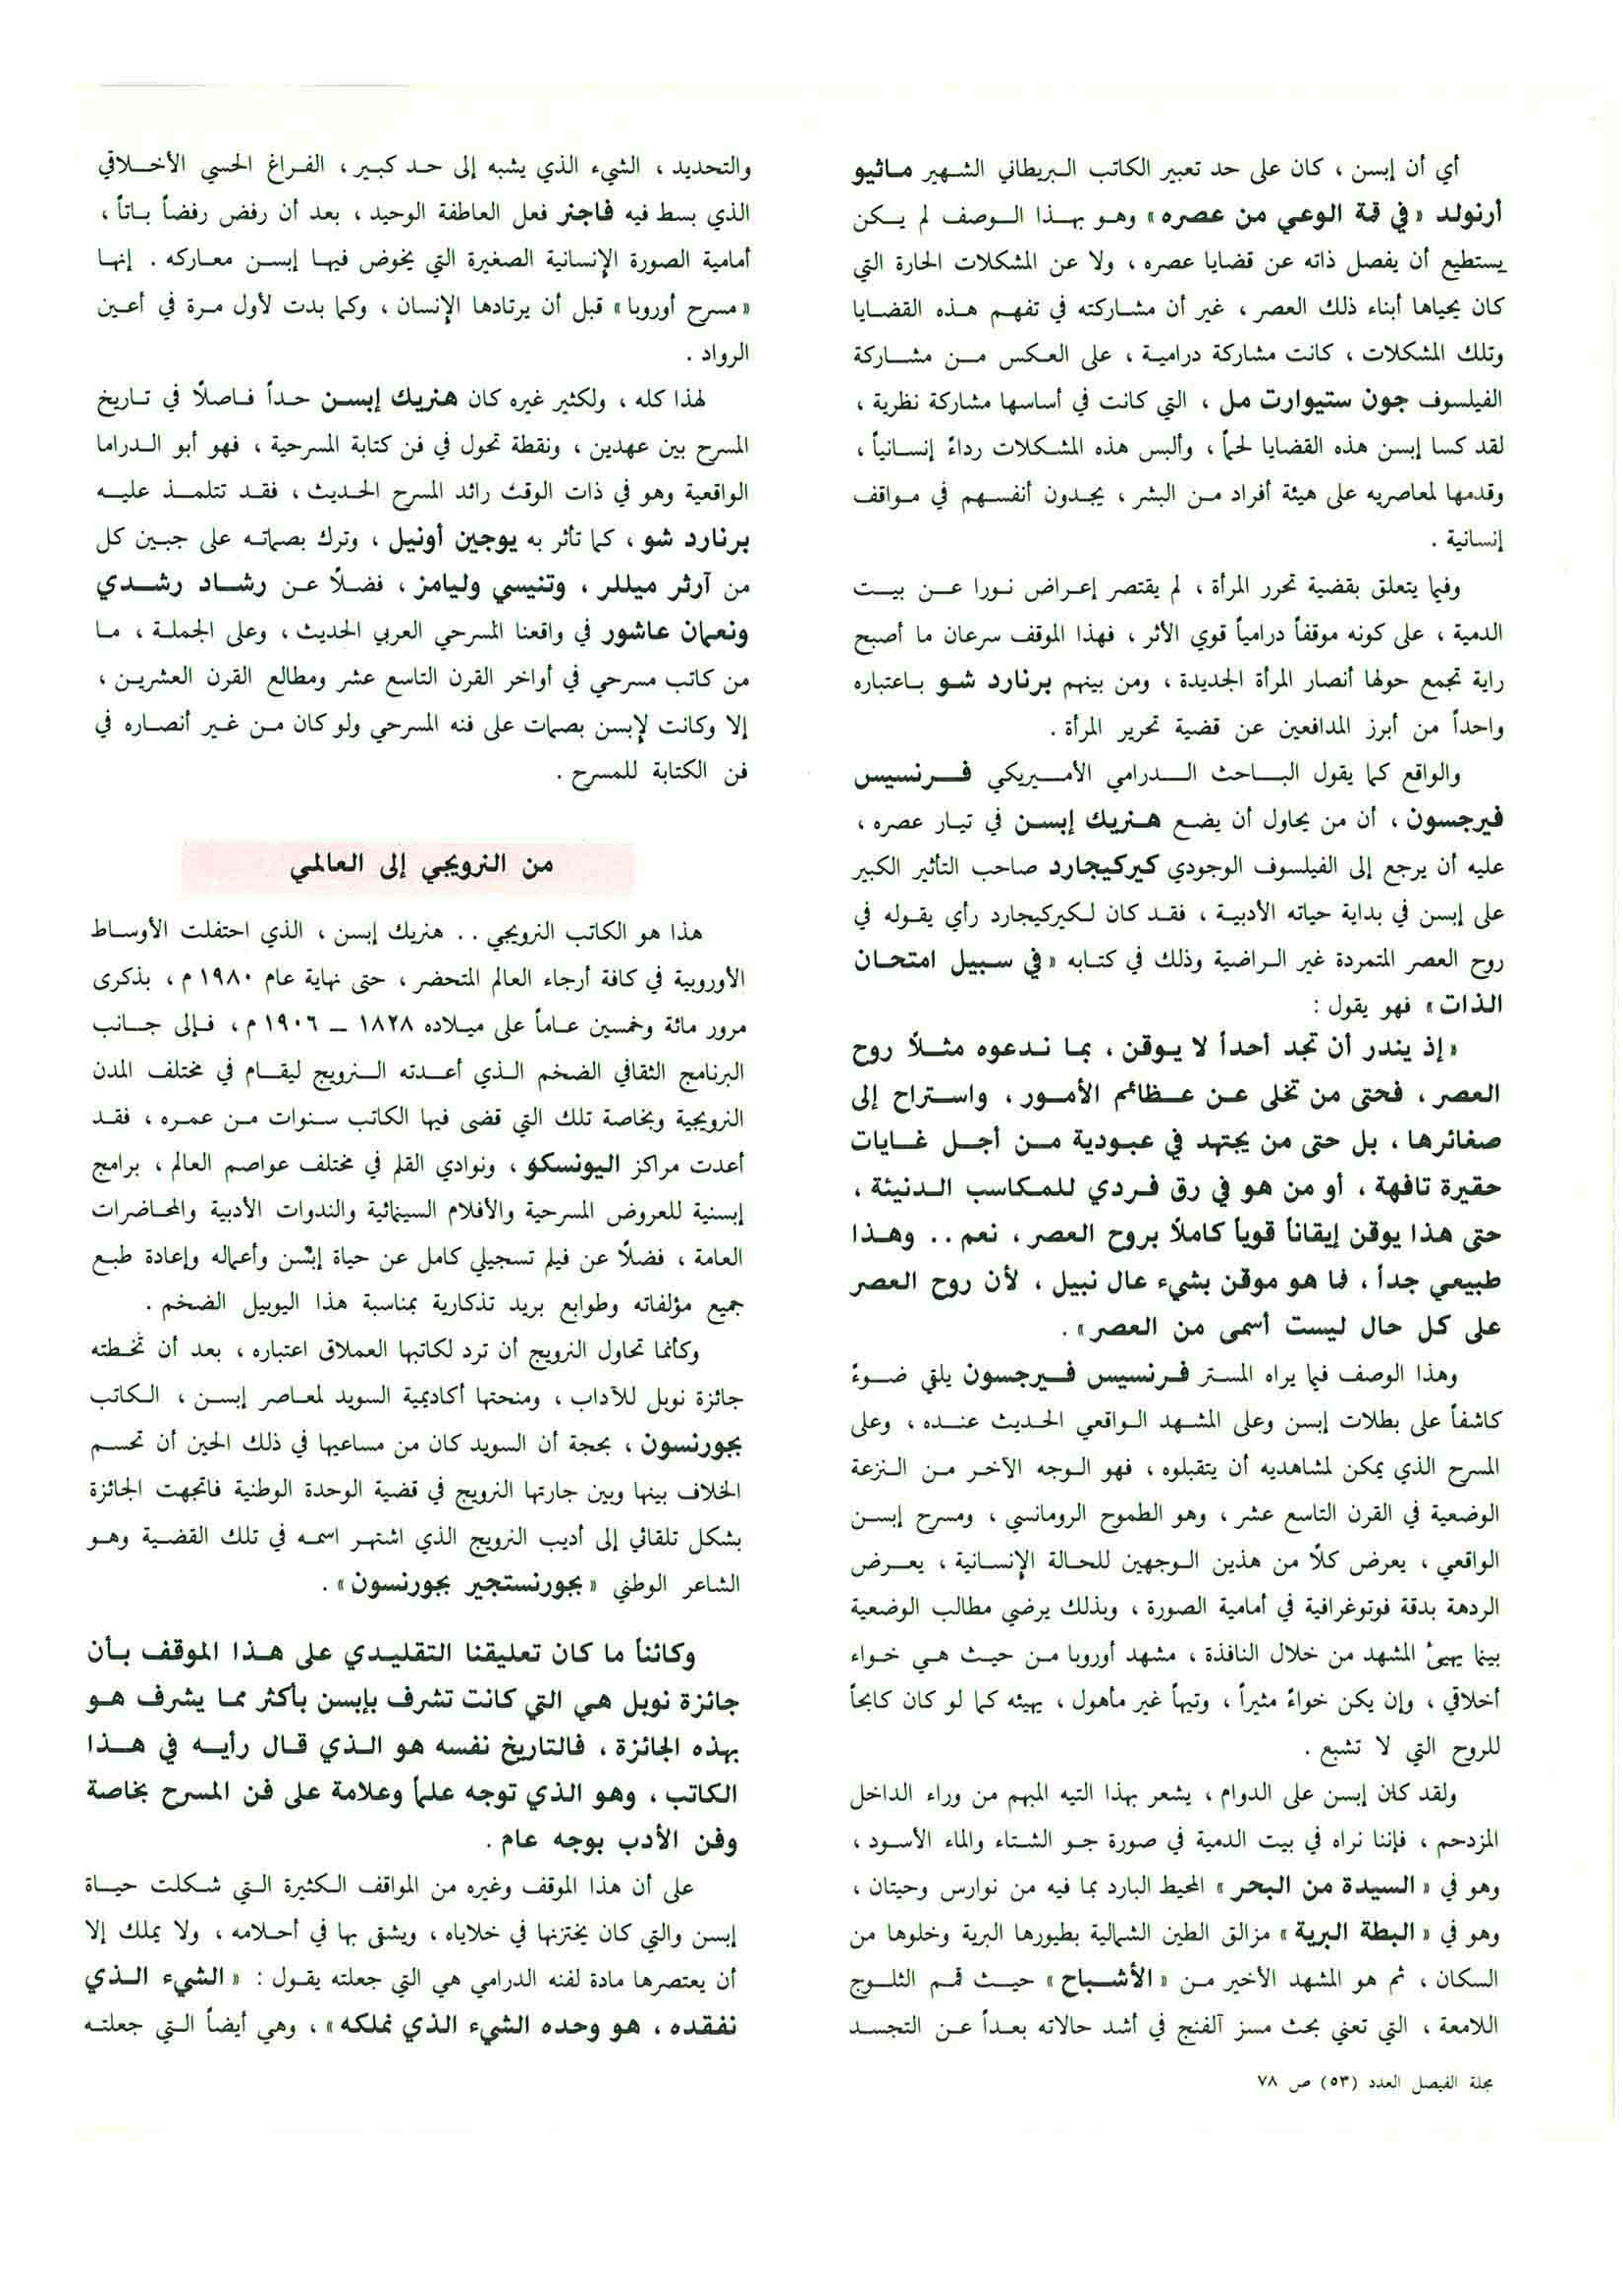 أي أن إبسن ، كان على حد تعبير الكاتب البريطاني الشهير ماثيو
أرنولد «في قمة الوعي من عصره» وهو بهذا الوصف لم يكن
يستطيع أن يفصل ذاته عن قضايا عصره ، ولا عن المشكلات الحارة التي
كان يحياها أبناء ذلك العصر ، غير أن مشاركته في تفهم هذه القضايا
وتلك المشكلات ، كانت مشاركة درامية ، على العكس من مشاركة
الفيلسوف جون ستيوارت مل ، التي كانت في أساسها مشاركة نظرية ،
لقد كسا إبسن هذه القضايا لحماً ، وألبس هذه المشكلات رداءً إنسانياً ،
وقدمها لمعاصريه على هيئة أفراد من البشر ، يجدون أنفسهم في مواقف
إنسانية .
وفيما يتعلق بقضية تحرر المرأة ، لم يقتصر إعراض نورا عن بيت
الدمية ، على كونه موقفاً درامياً قوي الأثر ، فهذا الموقف سرعان ما أصبح
راية تجمع حولها أنصار المرأة الجديدة ، ومن بينهم برنارد شو باعتباره
واحداً من أبرز المدافعين عن قضية تحرير المرأة .
والواقع كما يقول الباحث الدرامي الأميريكي فرنسيس
فيرجسون ، أن من يحاول أن يضع هنريك إبسن في تيار عصره ،
عليه أن يرجع إلى الفيلسوف الوجودي كيركيجارد صاحب التأثير الكبير
على إبسن في بداية حياته الأدبية ، فقد كان لكيركيجارد رأي يقوله في
روح العصر المتمردة غير الراضية وذلك في كتابه «في سبيل امتحان
الذات» فهو يقول :
«إذ يندر أن تجد أحداً لا يوقن ، بما ندعوه مثلاً روح
العصر ، فحتى من تخلى عن عظائم الأمور ، واستراح إلى
صغائرها ، بل حتى من يجتهد في عبودية من أجل غايات
حقيرة تافهة ، أو من هو في رق فردي للمكاسب الدنيئة ،
حتى هذا يوقن إيقاناً قوياً كاملاً بروح العصر ، نعم .. وهذا
طبيعي جداً ، فما هو موقن بشيء عال نبيل ، لأن روح العصر
على كل حال ليست أسمى من العصر» .
وهذا الوصف فيما يراه المستر فرنسيس فيرجسون يلقي ضوءً
كاشفاً على بطلات إبسن وعلى المشهد الواقعي الحديث عنده ، وعلى
المسرح الذي يمكن لمشاهديه أن يتقبلوه ، فهو الوجه الآخر من النزعة
الوضعية في القرن التاسع عشر ، وهو الطموح الرومانسي ، ومسرح إبسن
الواقعي ، يعرض كلًا من هذين الوجهين للحالة الإنسانية ، يعرض
الردهة بدقة فوتوغرافية في أمامية الصورة ، وبذلك يرضي مطالب الوضعية
بينما يهيئ المشهد من خلال النافذة ، مشهد أوروبا من حيث هي خواء
أخلاقي ، وإن يكن خواءً مثيراً ، وتيهاً غير مأهول ، يهيئه كما لو كان كابحاً
للروح التي لا تشبع .
ولقد كان إبسن على الدوام ، يشعر بهذا التيه المبهم من وراء الداخل
المزدحم ، فإننا نراه في بيت الدمية في صورة جو الشتاء والماء الأسود ،
وهو في «السيدة من البحر» المحيط البارد بما فيه من نوارس وحيتان ،
وهو في «البطة البرية» مزالق الطين الشمالية بطيورها البرية وخلوها من
السكان ، ثم هو المشهد الأخير من «الأشباح» حيث قمم الثلوج
اللامعة ، التي تعني بحث مسز آلفنج في أشد حالاته بعداً عن التجسد
مجلة الفيصل العدد (٥٣) ص ٧٨
والتحديد ، الشيء الذي يشبه إلى حد كبير ، الفراغ الحسي الأخلاقي
الذي بسط فيه فاجنر فعل العاطفة الوحيد ، بعد أن رفض رفضاً باتاً ،
أمامية الصورة الإنسانية الصغيرة التي يخوض فيها إبسن معاركه . إنها
«مسرح أوروبا» قبل أن يرتادها الإنسان ، وكما بدت لأول مرة في أعين
الرواد .
لهذا كله ، ولكثير غيره كان هنريك إبسن حداً فاصلًا في تاريخ
المسرح بين عهدين ، ونقطة تحول في فن كتابة المسرحية ، فهو أبو الدراما
الواقعية وهو في ذات الوقت رائد المسرح الحديث ، فقد تتلمذ عليه
برنارد شو ، كما تأثر به يوجين أونيل ، وترك بصماته على جبين كل
من آرثر ميللر ، وتنيسي وليامز ، فضلًا عن رشاد رشدي
ونعمان عاشور في واقعنا المسرحي العربي الحديث ، وعلى الجملة ، ما
من كاتب مسرحي في أواخر القرن التاسع عشر ومطالع القرن العشرين ،
إلا وكانت لإبسن بصمات على فنه المسرحي ولو كان من غير أنصاره في
فن الكتابة للمسرح .
من النرويجي إلى العالمي
هذا هو الكاتب النرويجي .. هنريك إبسن ، الذي احتفلت الأوساط
الأوروبية في كافة أرجاء العالم المتحضر ، حتى نهاية عام ١٩٨٠ م ، بذكرى
مرور مائة وخمسين عاماً على ميلاده ١٨٢٨ – ١٩٠٦ م ، فإلى جانب
البرنامج الثقافي الضخم الذي أعدته النرويج ليقام في مختلف المدن
النرويجية وبخاصة تلك التي قضى فيها الكاتب سنوات من عمره ، فقد
أعدت مراكز اليونسكو ، ونوادي القلم في مختلف عواصم العالم ، برامج
إبسنية للعروض المسرحية والأفلام السينمائية والندوات الأدبية والمحاضرات
العامة ، فضلًا عن فيلم تسجيلي كامل عن حياة إبسن وأعماله وإعادة طبع
جميع مؤلفاته وطوابع بريد تذكارية بمناسبة هذا اليوبيل الضخم .
وكأنما تحاول النرويج أن ترد لكاتبها العملاق اعتباره ، بعد أن تخطته
جائزة نوبل للآداب ، ومنحتها أكاديمية السويد لمعاصر إبسن ، الكاتب
بجورنسون ، بحجة أن السويد كان من مساعيها في ذلك الحين أن تحسم
الخلاف بينها وبين جارتها النرويج في قضية الوحدة الوطنية فاتجهت الجائزة
بشكل تلقائي إلى أديب النرويج الذي اشتهر اسمه في تلك القضية وهو
الشاعر الوطني «بجورنستجير بجورنسون» .
وكائناً ما كان تعليقنا التقليدي على هذا الموقف بأن
جائزة نوبل هي التي كانت تشرف بإبسن بأكثر مما يشرف هو
بهذه الجائزة ، فالتاريخ نفسه هو الذي قال رأيه في هذا
الكاتب ، وهو الذي توجه علماً وعلامة على فن المسرح بخاصة
وفن الأدب بوجه عام .
على أن هذا الموقف وغيره من المواقف الكثيرة التي شكلت حياة
إبسن والتي كان يختزنها في خلاياه ، ويشقى بها في أحلامه ، ولا يملك إلا
أن يعتصرها مادة لفنه الدرامي هي التي جعلته يقول : «الشيء الذي
نفقده ، هو وحده الشيء الذي نملكه» ، وهي أيضاً التي جعلته